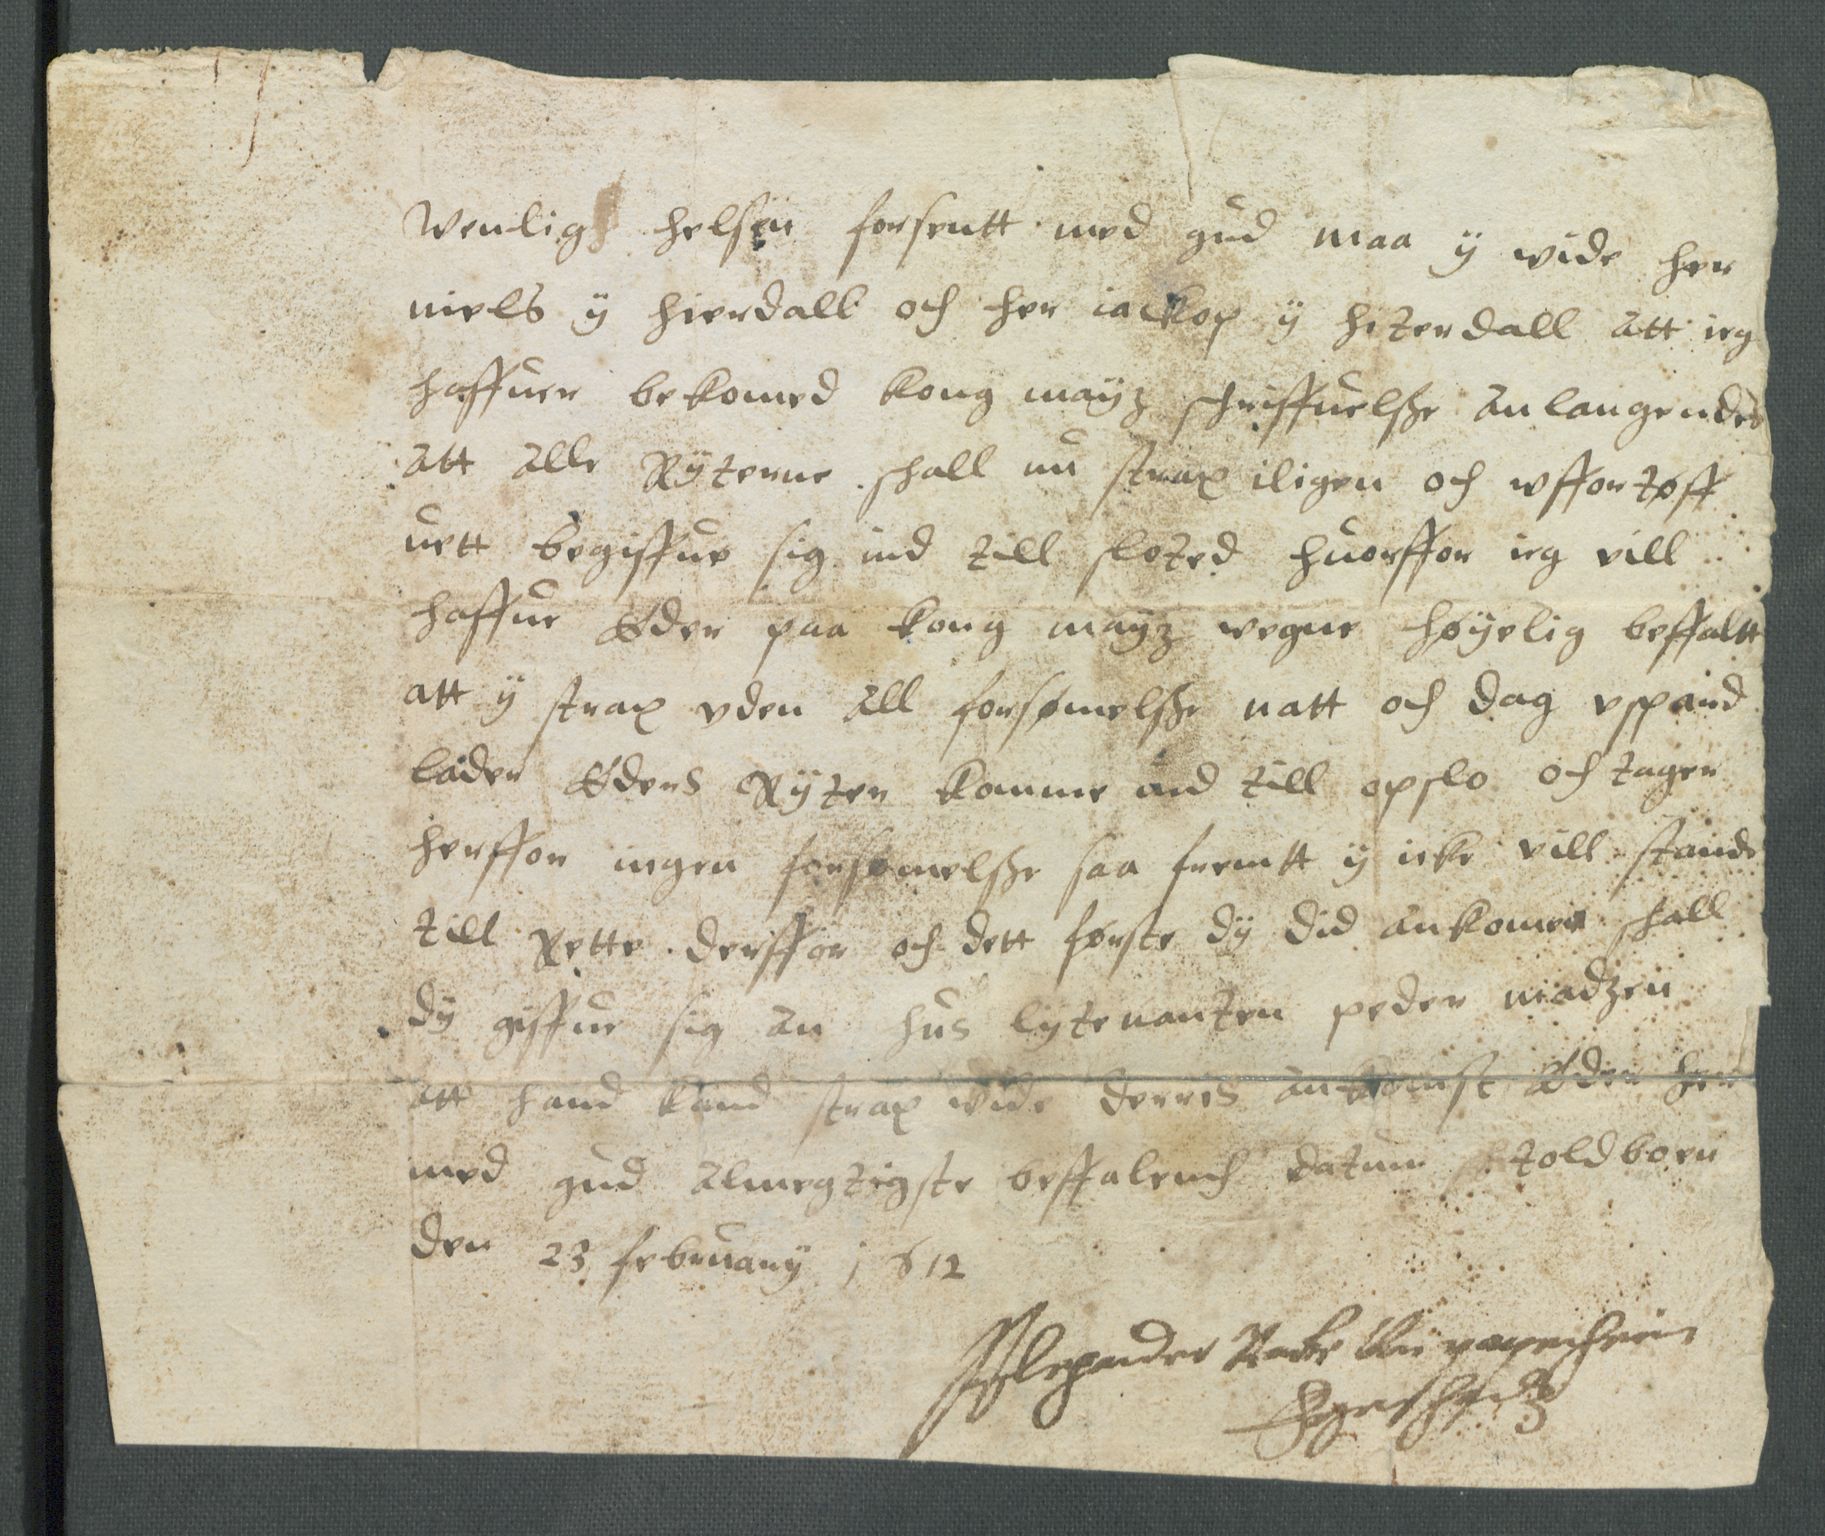 Wenlig helsen forsentt med gud maa ÿ wide her
niels ÿ hierdall och her iackop ÿ hiterdall att ieg
haffuer bekomed kong maÿz schriffuelsse anlangendes
att alle Rÿterne schall nu strax iligen och wffortøff
uett begiffue sig ind till sloted huorffor ieg vill
haffue Eder paa kong maÿz wegne høÿelig beffaltt
att ÿ strax vden all forsømelsse natt och dag vspard
lader Eders Rÿter komme ind till opslo och tager
herffor ingen forsømelsse saa fremtt ÿ icke vill stande
till Rette derffor och dett første dÿ did ankomer schall
dÿ giffue sig an hus lÿtenanten peder madzen
att hand kand strax wide derris ankomst Eder her
med gud almegtigste beffalendh datum toldboen
den 23 februarÿ 1612
Alexander